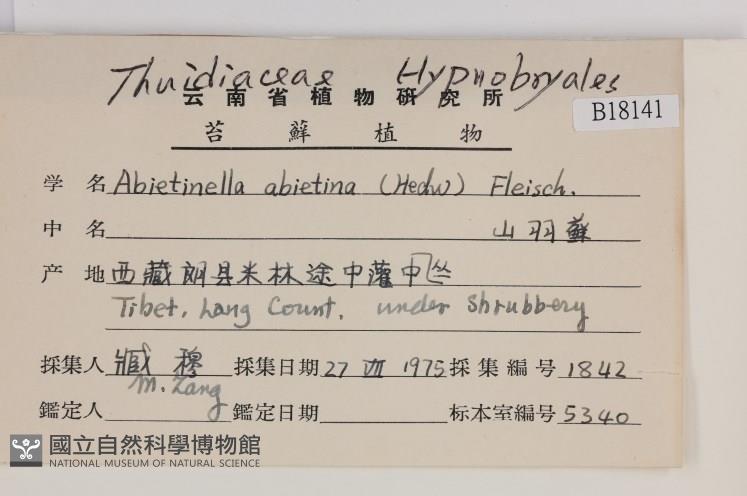 Thuidiaceae Hypnobryales
云南省植物研究所
B18141
苔蘚植物
学名 Abietinella abietina (Hedw) Fleisch.
中名 山羽蘚
产地 西藏朗县米林途中灌中丛
Tibet, Lang Count. under Shrubbery
採集人 臧穆 採集日期 27 VII 1975 採集编号 1842
M. Zang
鑑定人 鑑定日期 标本室编号 5340
國立自然科學博物館
NATIONAL MUSEUM OF NATURAL SCIENCE